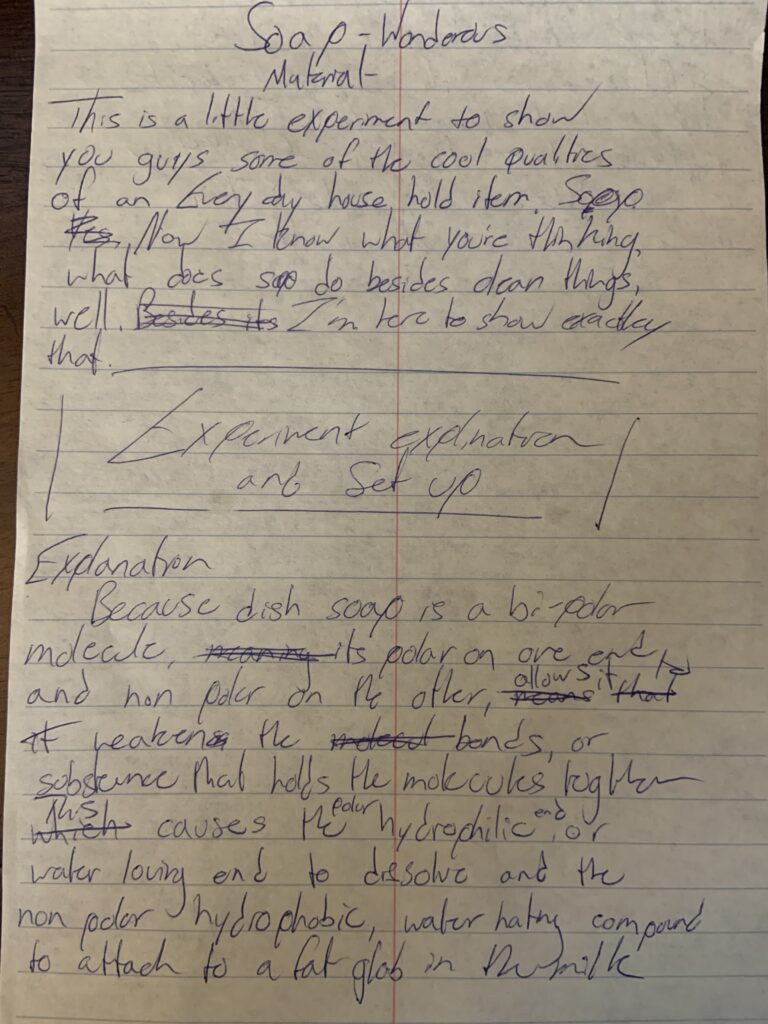 Soap - Wonderous
Material-
This is a little experiment to show
you guys some of the cool qualities
of an Every day house hold item. Soap
Yes, Now I know what you're thinking,
what does soap do besides clean things,
well. Besides its I'm here to show exactley
that.
Experiment explination
and Set up
Explanation
Because dish soap is a bi-polar
molecule, meaning its polar on one end
and non polar on the other, means that
allows it to
it weakens the molecul bonds, or
substance that holds the molecules togther
This
which causes the polar hydrophilic end, or
water loving end to dissolve and the
non polar hydrophobic, water hating compound
to attach to a fat glob in the milk